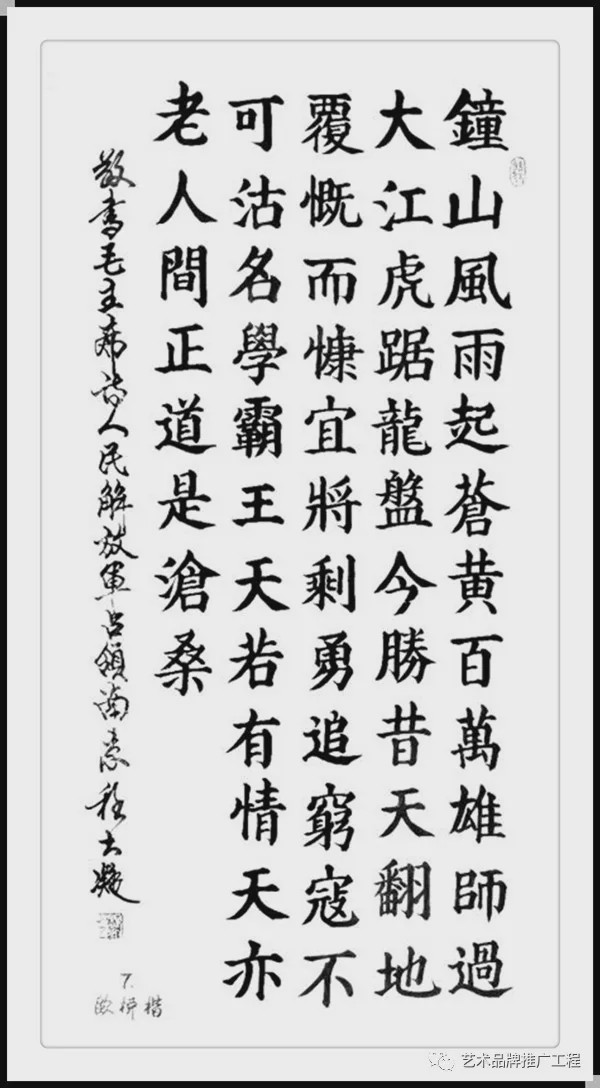 鐘山風雨起蒼黄百萬雄師過
大江虎踞龍盤今勝昔天翻地
覆慨而慷宜將剩勇追窮寇不
可沽名學霸王天若有情天亦
老人間正道是滄桑
敬書毛主席诗人民解放軍占領南京程大
7.
欧楷
艺术品牌推广工程